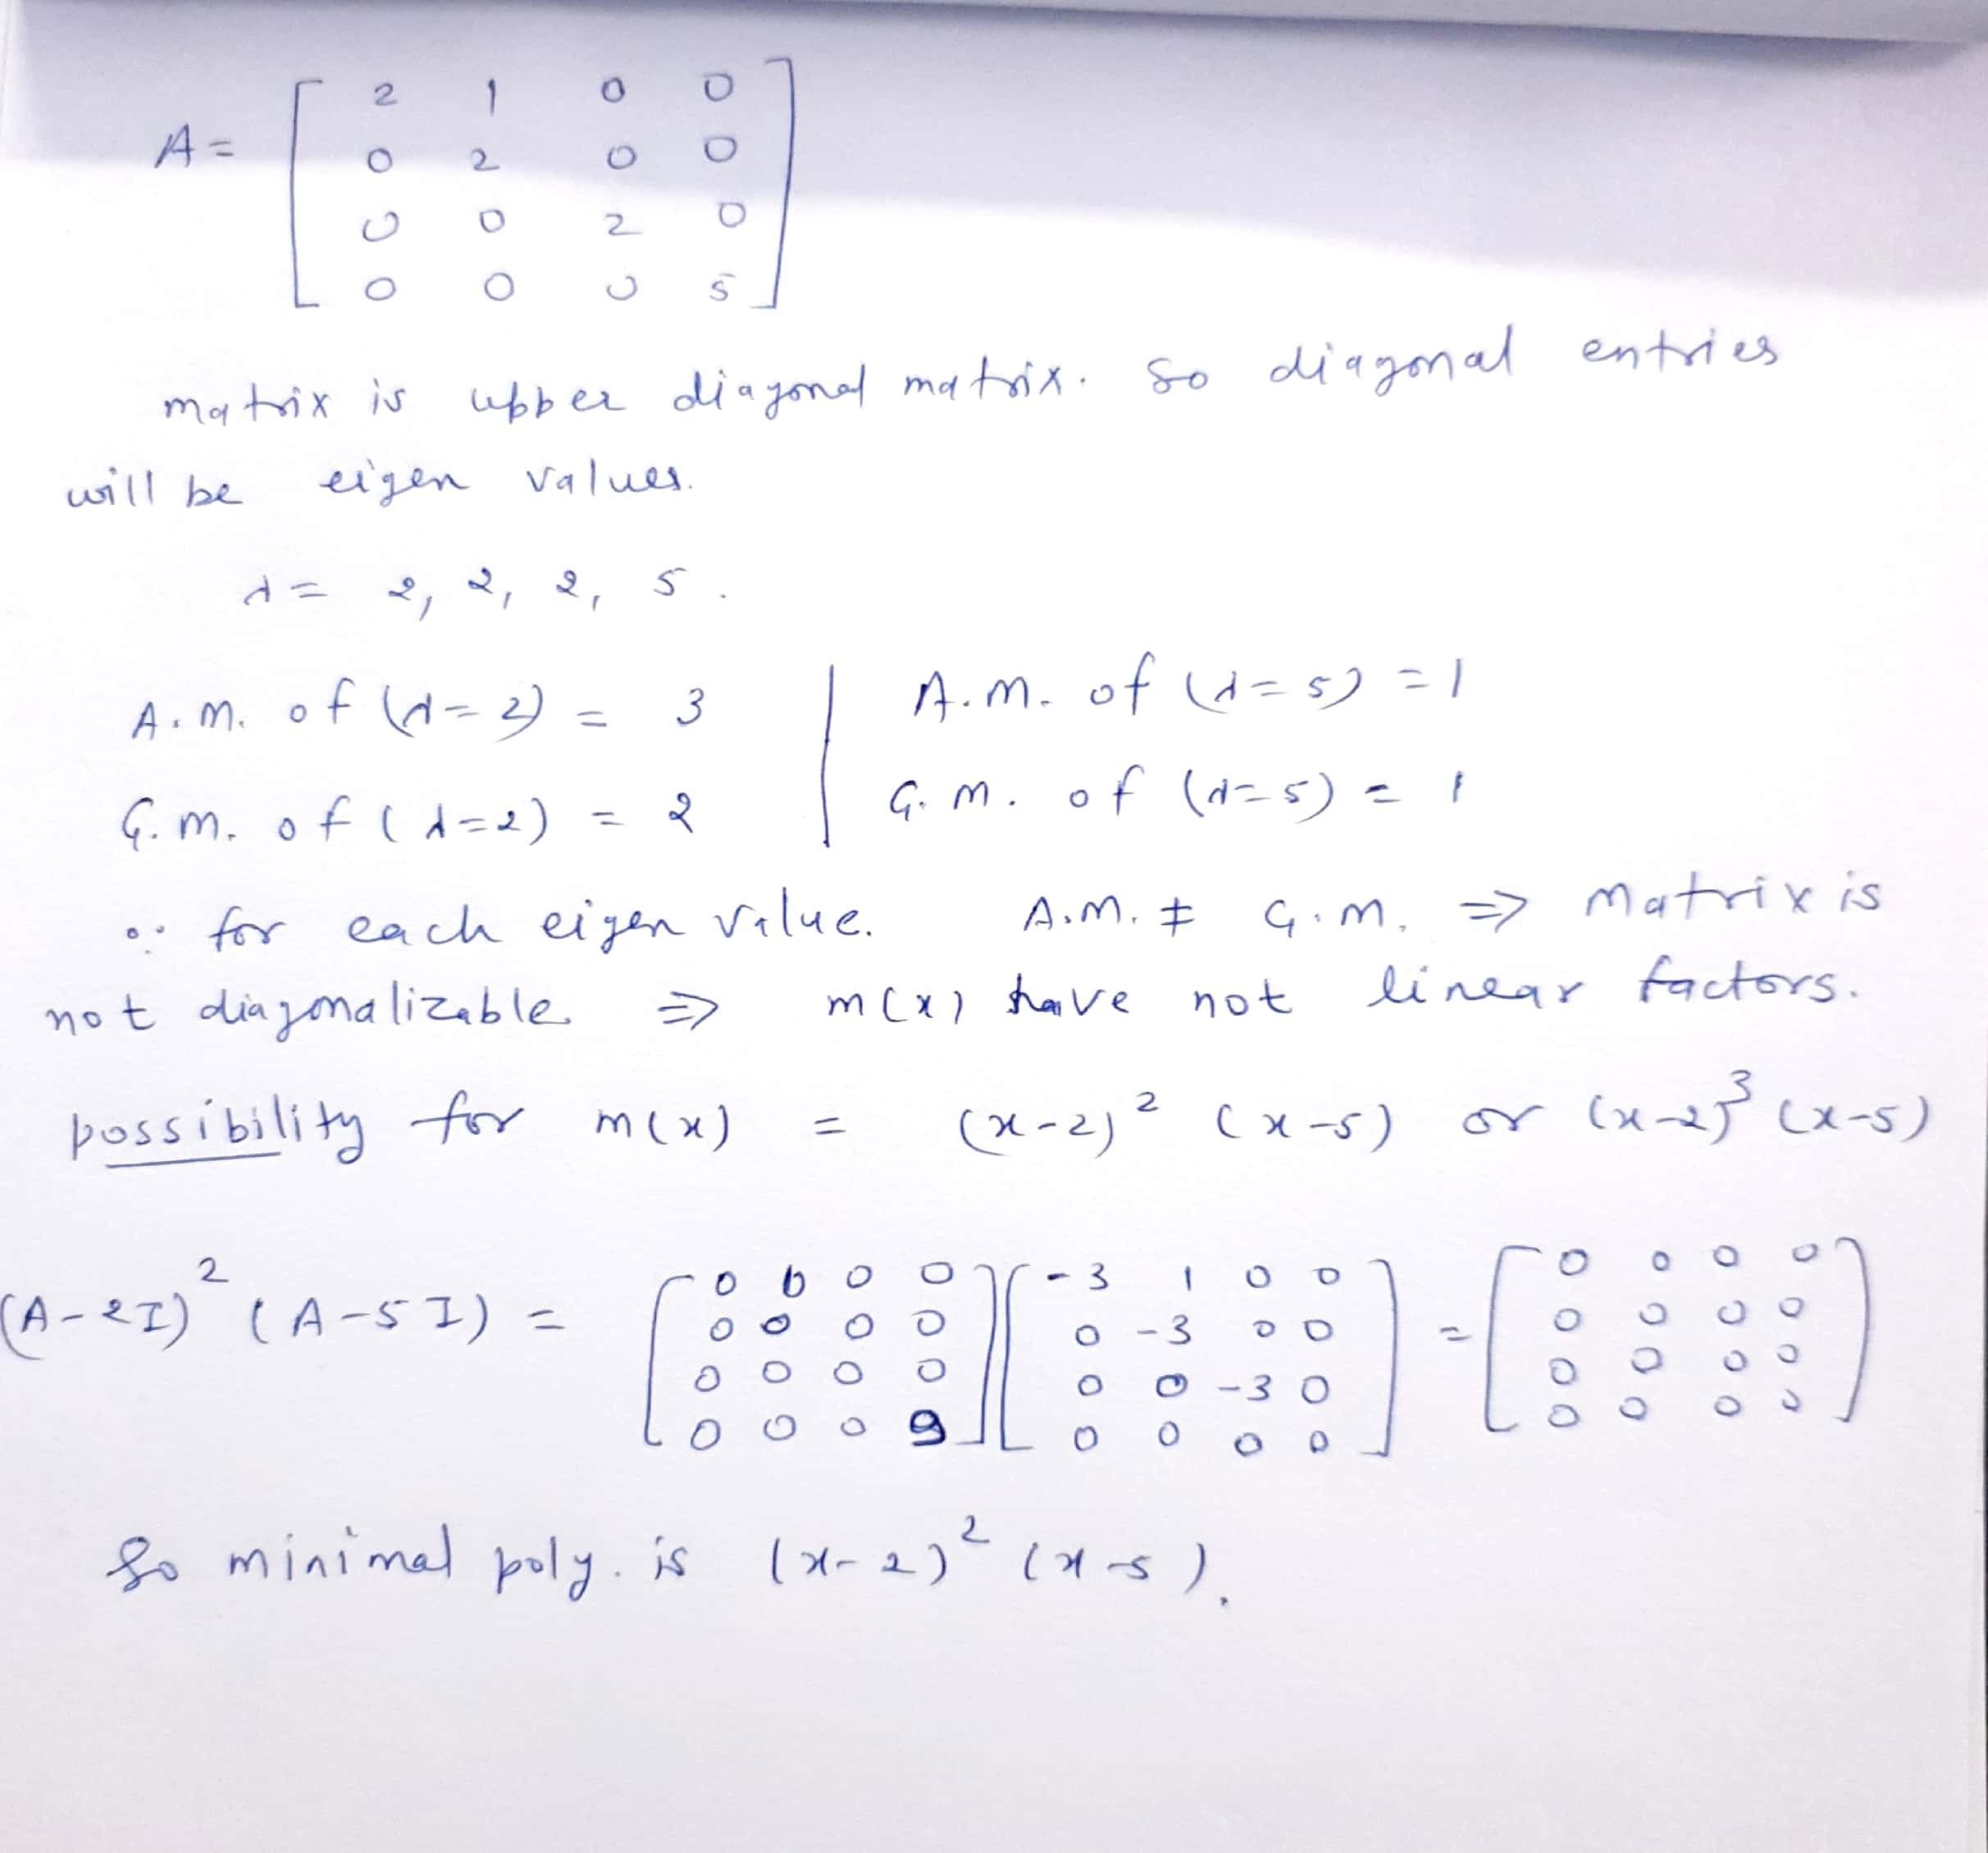 A = [ 2 1 0 0
0 2 0 0
0 0 2 0
0 0 0 5 ]
matrix is upper diagonal matrix. So diagonal entries
will be eigen values.
λ = 2, 2, 2, 5.
A.M. of (λ=2) = 3 | A.M. of (λ=5) = 1
G.M. of (λ=2) = 2 | G.M. of (λ=5) = 1
∵ for each eigen value. A.M. ≠ G.M. ⇒ Matrix is
not diagonalizable ⇒ m(x) have not linear factors.
possibility for m(x) = (x-2)² (x-5) or (x-2)³ (x-5)
(A-2I)² (A-5I) = [ 0 0 0 0 ] [ -3 1 0 0 ] = [ 0 0 0 0 ]
[ 0 0 0 0 ] [ 0 -3 0 0 ] [ 0 0 0 0 ]
[ 0 0 0 0 ] [ 0 0 -3 0 ] [ 0 0 0 0 ]
[ 0 0 0 9 ] [ 0 0 0 0 ] [ 0 0 0 0 ]
So minimal poly. is (x-2)² (x-5).